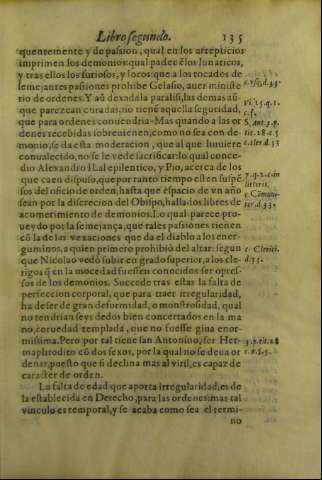 Libro segundo. 135
quentemente y de passion, qual en los arrepticios
imprimen los demonios: qual padecẽ los lunaticos,
y tras ellos los furiosos, y locos: que a los tocados de
semejantes passiones prohibe Gelasio, auer ministe
rio de ordenes. Y aũ dexada la paralisi, las demas aũ
que parezcan curadas, no tienẽ aquella seguridad,
que para ordenes conuendria. Mas quando a las or
denes recebidas sobreuienen, como no sea con de-
monio, se da esta moderacion, que al que huuiere
conualecido, no se le vede sacrificar: lo qual conce-
dio Alexandro II. al epileptico, y Pio, acerca de los
que caen dispuso, que por tanto tiempo estẽ suspẽ
sos del oficio de orden, hasta que espacio de vn año
sean por la discrecion del Obispo, hallados libres de
acometimiento de demonios. Lo qual parece pro-
ueydo por la semejança, que tales passiones tienen
cõ la de las vexaciones que da el diablo a los ener-
guminos, a quien primero prohibio del altar: segun
que Nicolao vedo subir en grado superior, a los cle-
rigos q̃ en la mocedad fuessen conocidos ser opres-
sos de los demonios. Succede tras estas la falta de
perfeccion corporal, que para traer irregularidad,
ha de ser de gran deformidad, o monstrosidad, qual
no tendrian seys dedos bien concertados en la ma
no, corcuedad templada, que no fuesse gina enor-
missima. Pero por tal tiene san Antonino, ser Her-
maphrodito cõ dos sexos, por la qual no se deua or
denar, puesto que si declina mas al viril, es capaz de
caracter de orden.
La falta de edad que aporta irregularidad, es de
la establecida en Derecho, para las ordenes. mas tal
vinculo es temporal, y se acaba como sea el termi-
no
c. Clerici.
d. 33.